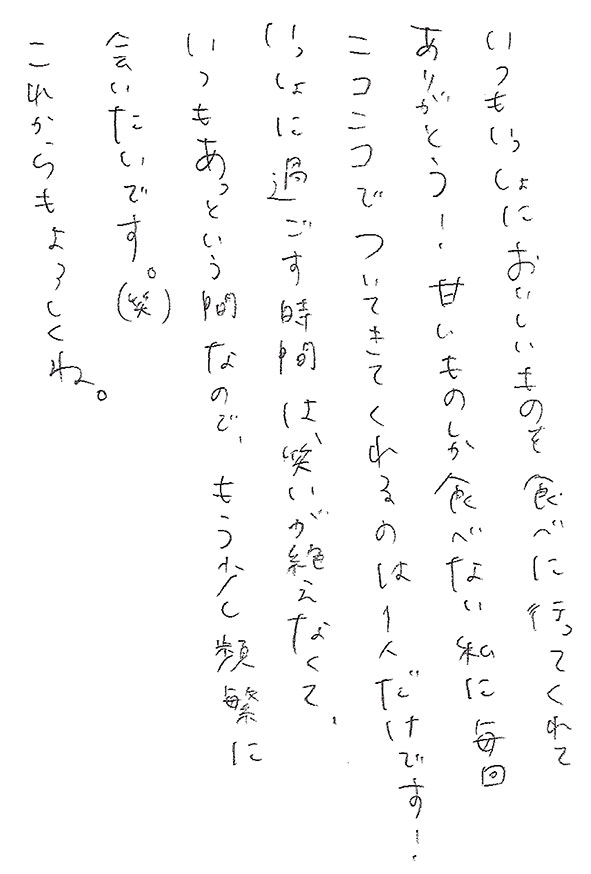 いつもいっしょにおいしいものを食べに行ってくれて
ありがとう！甘いものしか食べない私に毎回
ニコニコでついてきてくれるのは1人だけです！
いっしょに過ごす時間は、笑いが絶えなくて、
いつもあっという間なので、もう少し頻繁に
会いたいです。(笑)
これからもよろしくね。